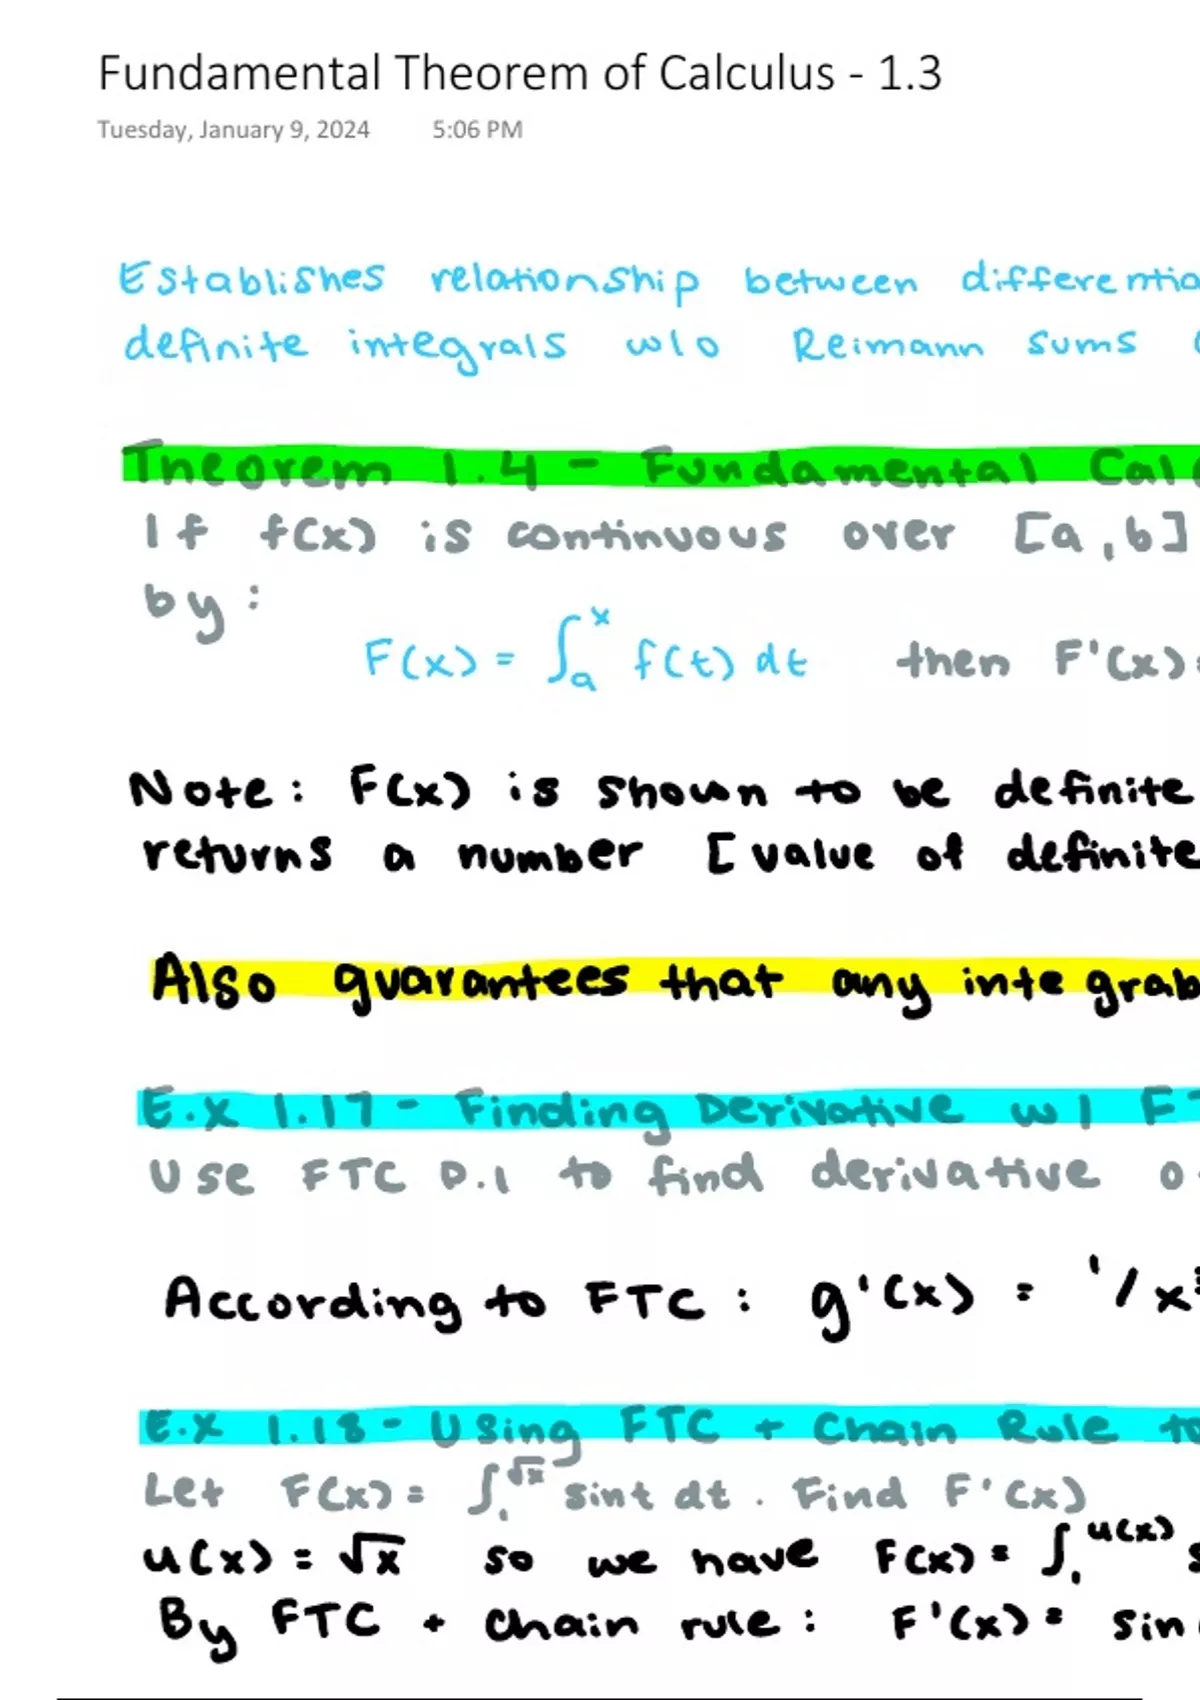 Fundamental Theorem of Calculus - 1.3
Tuesday, January 9, 2024 5:06 PM
Establishes relationship between differentia
definite integrals w/o Reimann sums
Theorem 1.4 - Fundamental Calc
If f(x) is continuous over [a,b]
by:
F(x) = ∫ₐˣ f(t) dt then F'(x)=
Note: F(x) is shown to be definite
returns a number [value of definite
Also guarantees that any integrab
E.x 1.17 - Finding Derivative w/ F
Use FTC p.1 to find derivative o
According to FTC : g'(x) = 1/x³
E.x 1.18 - Using FTC + Chain Rule to
Let F(x) = ∫₁^√x sint dt . Find F'(x)
u(x) = √x so we have F(x) = ∫₁^u(x) s
By FTC + chain rule : F'(x) = sin